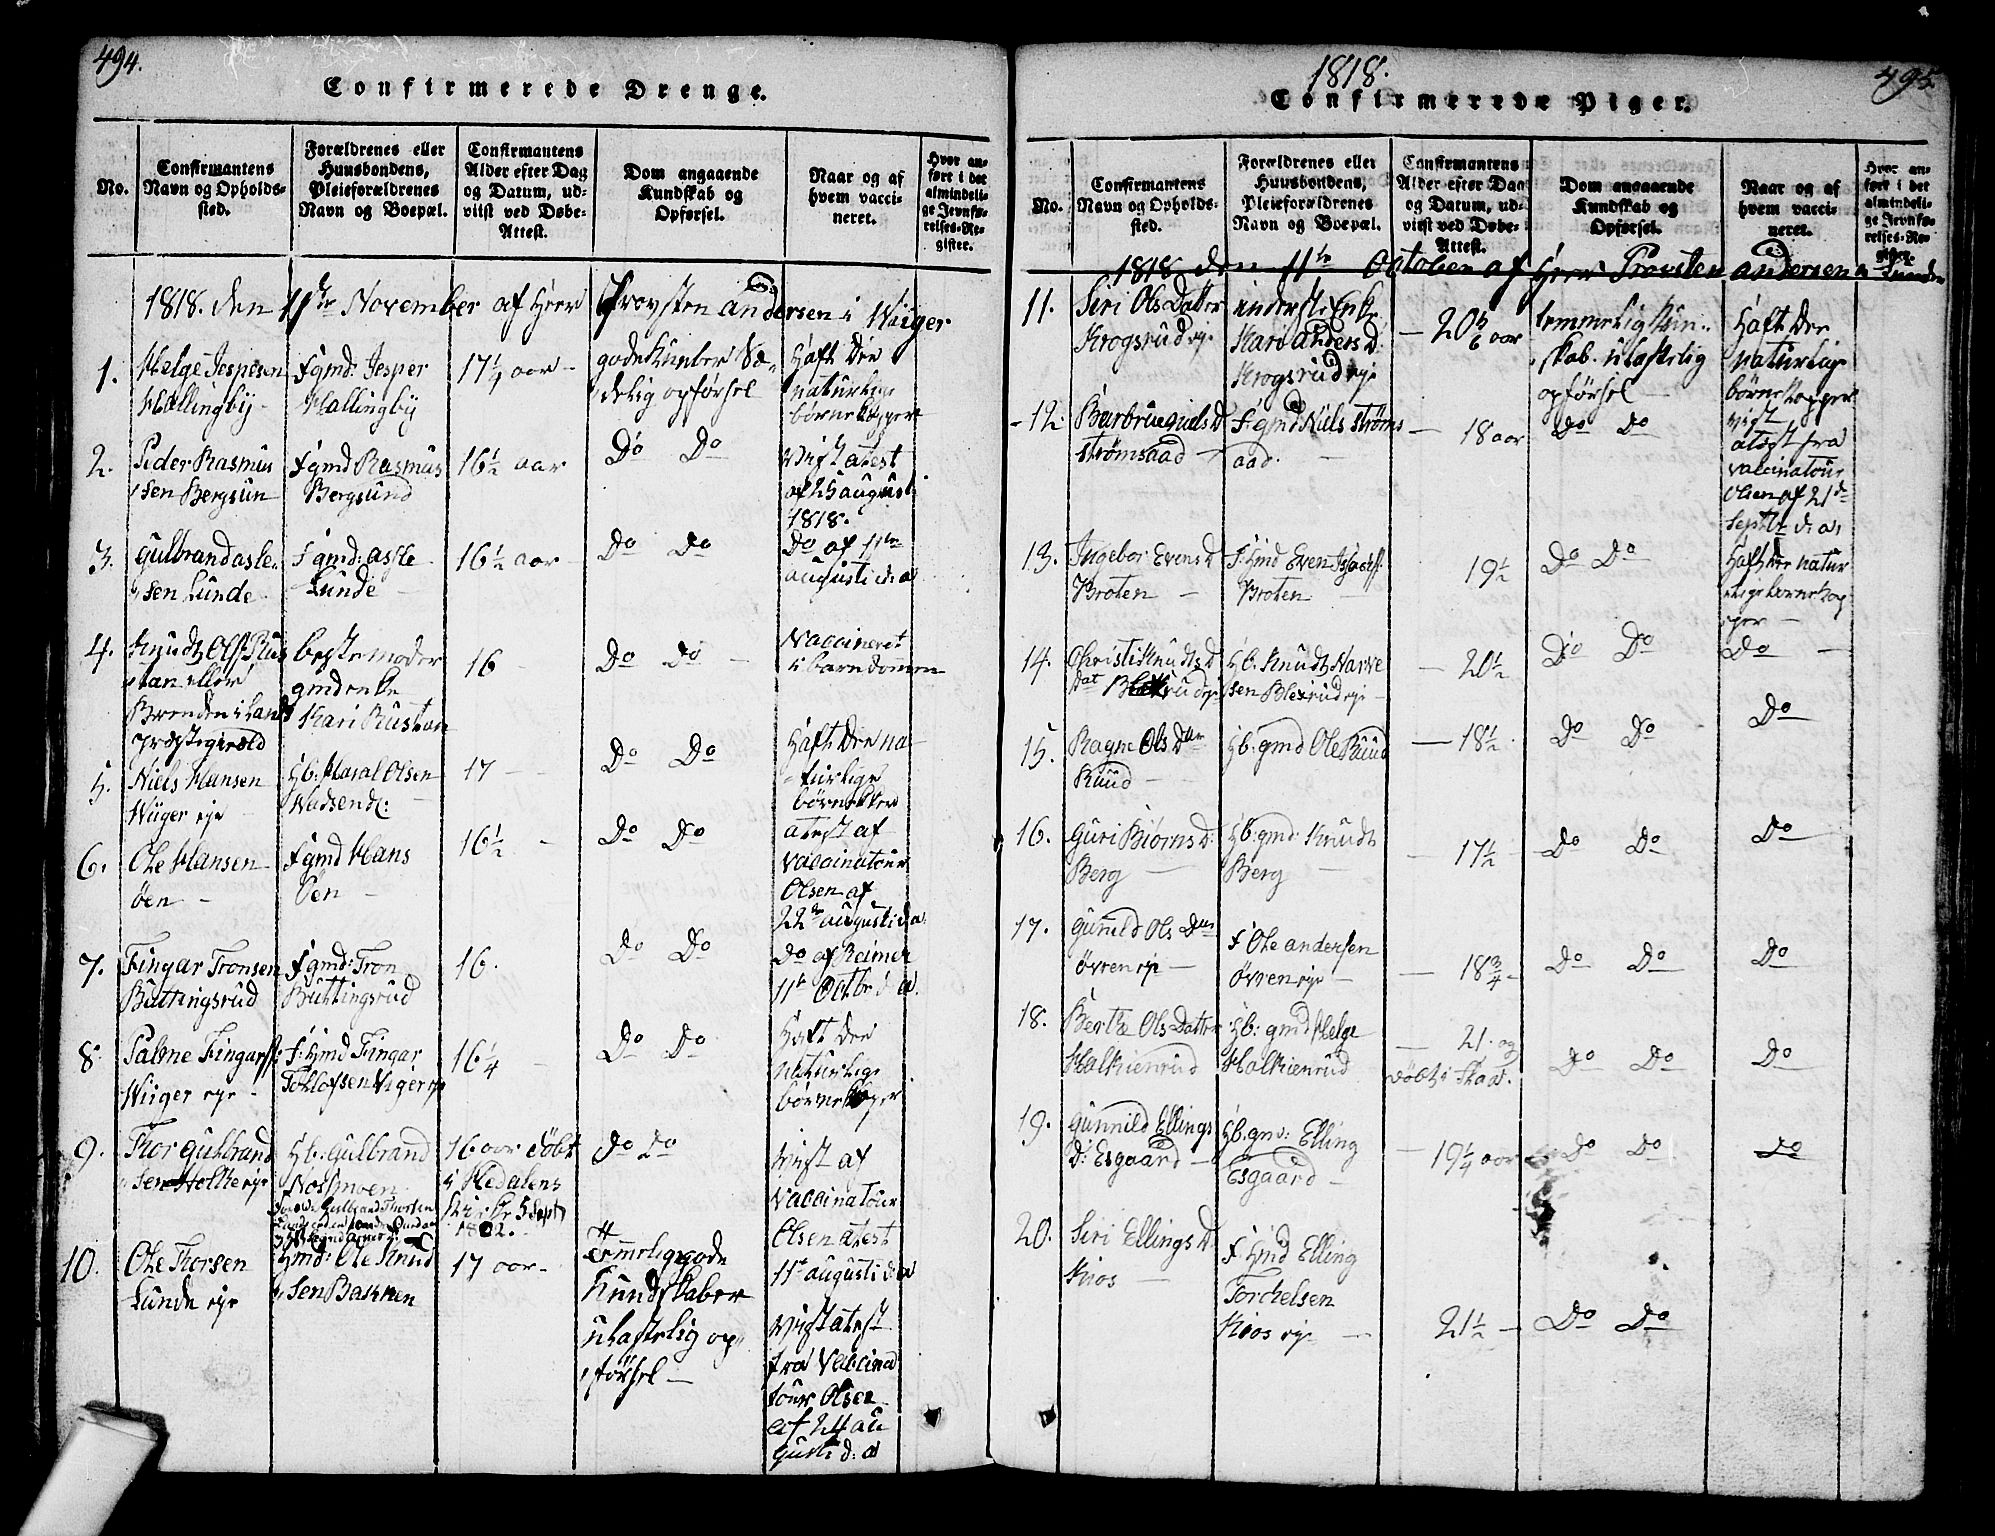 494.
Confirmerede Drenge.
No.
Confirmantens
Navn og Opholds-
sted.
Forældrenes eller
Huusbondens,
Pleieforældrenes
Navn og Boepæl.
Confirmantens
Alder efter Dag
og Datum, ud-
viist ved Døbe-
Attest.
Dom angaaende
Kundskab og
Opførsel.
Naar og af
hvem vacci-
neret.
Hvor an-
ført i det
almindeli-
ge Jevnfø-
relses-Re-
gister.
1818. den 11te November af Herr Provsten Andersen i Wiiger
1.
Helge Jespesen
Hallingby
F gmd: Jesper
Hallingby
17¼ aar
gode Kunber Sæ-
delig opførsel
Haft Die
naturlige
børnekopper
2.
Peder Rasmus
sen Bergsun
F gmd Rasmus
Bergsund
16½ aar
Do Do
vist atest
af 25 august
1818.
3.
Gulbrand asle
sen Lunde
F gmd: asle
Lunde
16½ aar
Do Do
Do af 11te
augusti d: a
4.
Knudt Ols Rus
tan eller
Brenden i Lands
præstegield
bestemoder
gmd enke
Kari Rustan
16
Do Do
Vaccineret
i barndomen
5.
Niels Hansen
Wiiger eje
Hb: Haral Olsen
Wadsend:
17
Do Do
Haft Die na-
turlige
børnekker
6.
Ole Hansen
Øen
F gmd Hans
Øen
16½
Do Do
atest af
Vaccinatour
Olsen af
22de augusti d: a
7.
Fingar Tronsen
Buttingsrud
F gmd: Tron
Buttingsrud
16.
Do Do
Do af Reimer
11te Octbr d a.
8.
Palme Fingars:
Wiiger eje
F: Hmd Fingar
Tollofsen Wiger eje
16¼
Do Do
Haft Die
naturlige
børnekoper
9.
Thor Gulbrand
sen Holke eje
Hb: Gulbrand
Nossmoen
16 aar døbt
i Hedalens
Kirke 5 Sept
1802.
Do Do
vist af
Vaccinatour
Olsen atest
11te augusti d: a
10.
Ole Thorsen
Lunde eje
Hmd: Ole Knud
sen Bakken
17 aar
Temmelig gode
Kundskaber
ulastelig op
førsel
vist atest
fra Vaccina
tour Olsen
af 24 au
gusti d: a
1818.
495
Confirmerede Piger.
No.
Confirmantens
Navn og Opholds-
sted.
Forældrenes eller
Huusbondens,
Pleieforældrenes
Navn og Boepæl.
Confirmantens
Alder efter Dag
og Datum, ud-
viist ved Døbe-
Attest.
Dom angaaende
Kundskab og
Opførsel.
Naar og af
hvem vacci-
neret.
Hvor an-
ført i det
almindeli-
ge Jevnfø-
relses-Re-
gister.
1818 den 11te October af Herr Provsten Andersen
11.
Siri Ols Datter
Krogsrud eje
inderste Enke
Kari Anders D:
Krogsrud eje
20 5/6 aar
temmelig Kun-
skab. ulastelig
opførsel
Haft Die
naturlig
børnekopper
12.
Barbrue Niels D
Strømsaad
F: gmd Niels Strøms
aad.
18 aar
Do Do
vist
atest fra
vaccinatour
Olsen af 21de
Septbr d: a:
13.
Ingebor Evens D
Broten
F: Hmd Even Isacks:
Broten
19½
Do Do
Haft Die natur
lige børnekop
per
14.
Christi Knudts D
Dat Blexrud eje
Hb: Knudt Narve
sen Blexrud eje
20½
Do Do
Do
15.
Ragne Ols Dtr
Ruud
Hb: gmd Ole Ruud
18½
Do Do
Do
16.
Guri Biørns D:
Berg
Hb: gmd: Knudt
Berg
17½
Do Do
Do
17.
Gunild Ols Dat
Øvren eje
F Ole Andersen
Øvren eje
18¾
Do Do
Do
18.
Berthe Ols Datter
Halkienrud
Hb: gmd Helge
Halkienrud
21. og
døbt i Flaae.
Do Do
Do
19.
Gunnild Ellings
D: Esgaard
Hb: gm: Elling
Esgaard
19¼ aar
Do Do
Do
20.
Siri Ellings D
Kios
F: Hmd Elling
Torchelsen
Kios eje
21½
Do Do